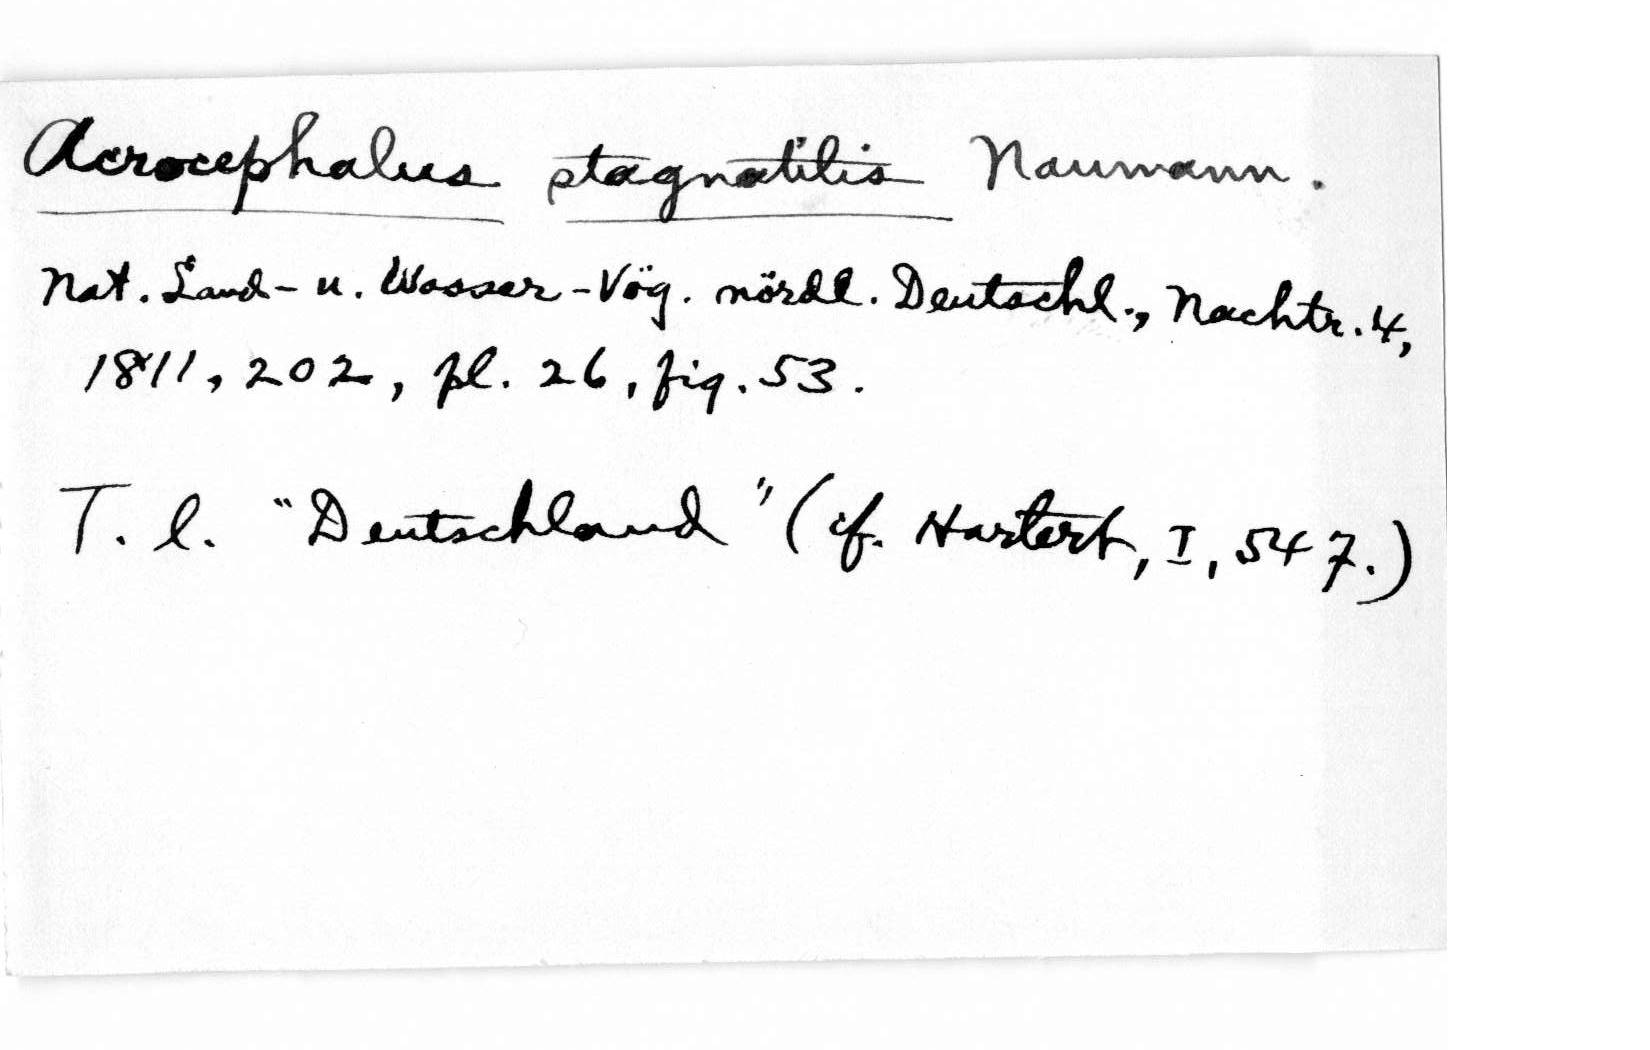 Acrocephalus stagnatilis Naumann.
Nat. Land- u. Wasser-Vög. nördl. Deutschl., Nachtr. 4,
1811, 202, pl. 26, fig. 53.
T. l. "Deutschland" (cf. Hartert, I, 547.)